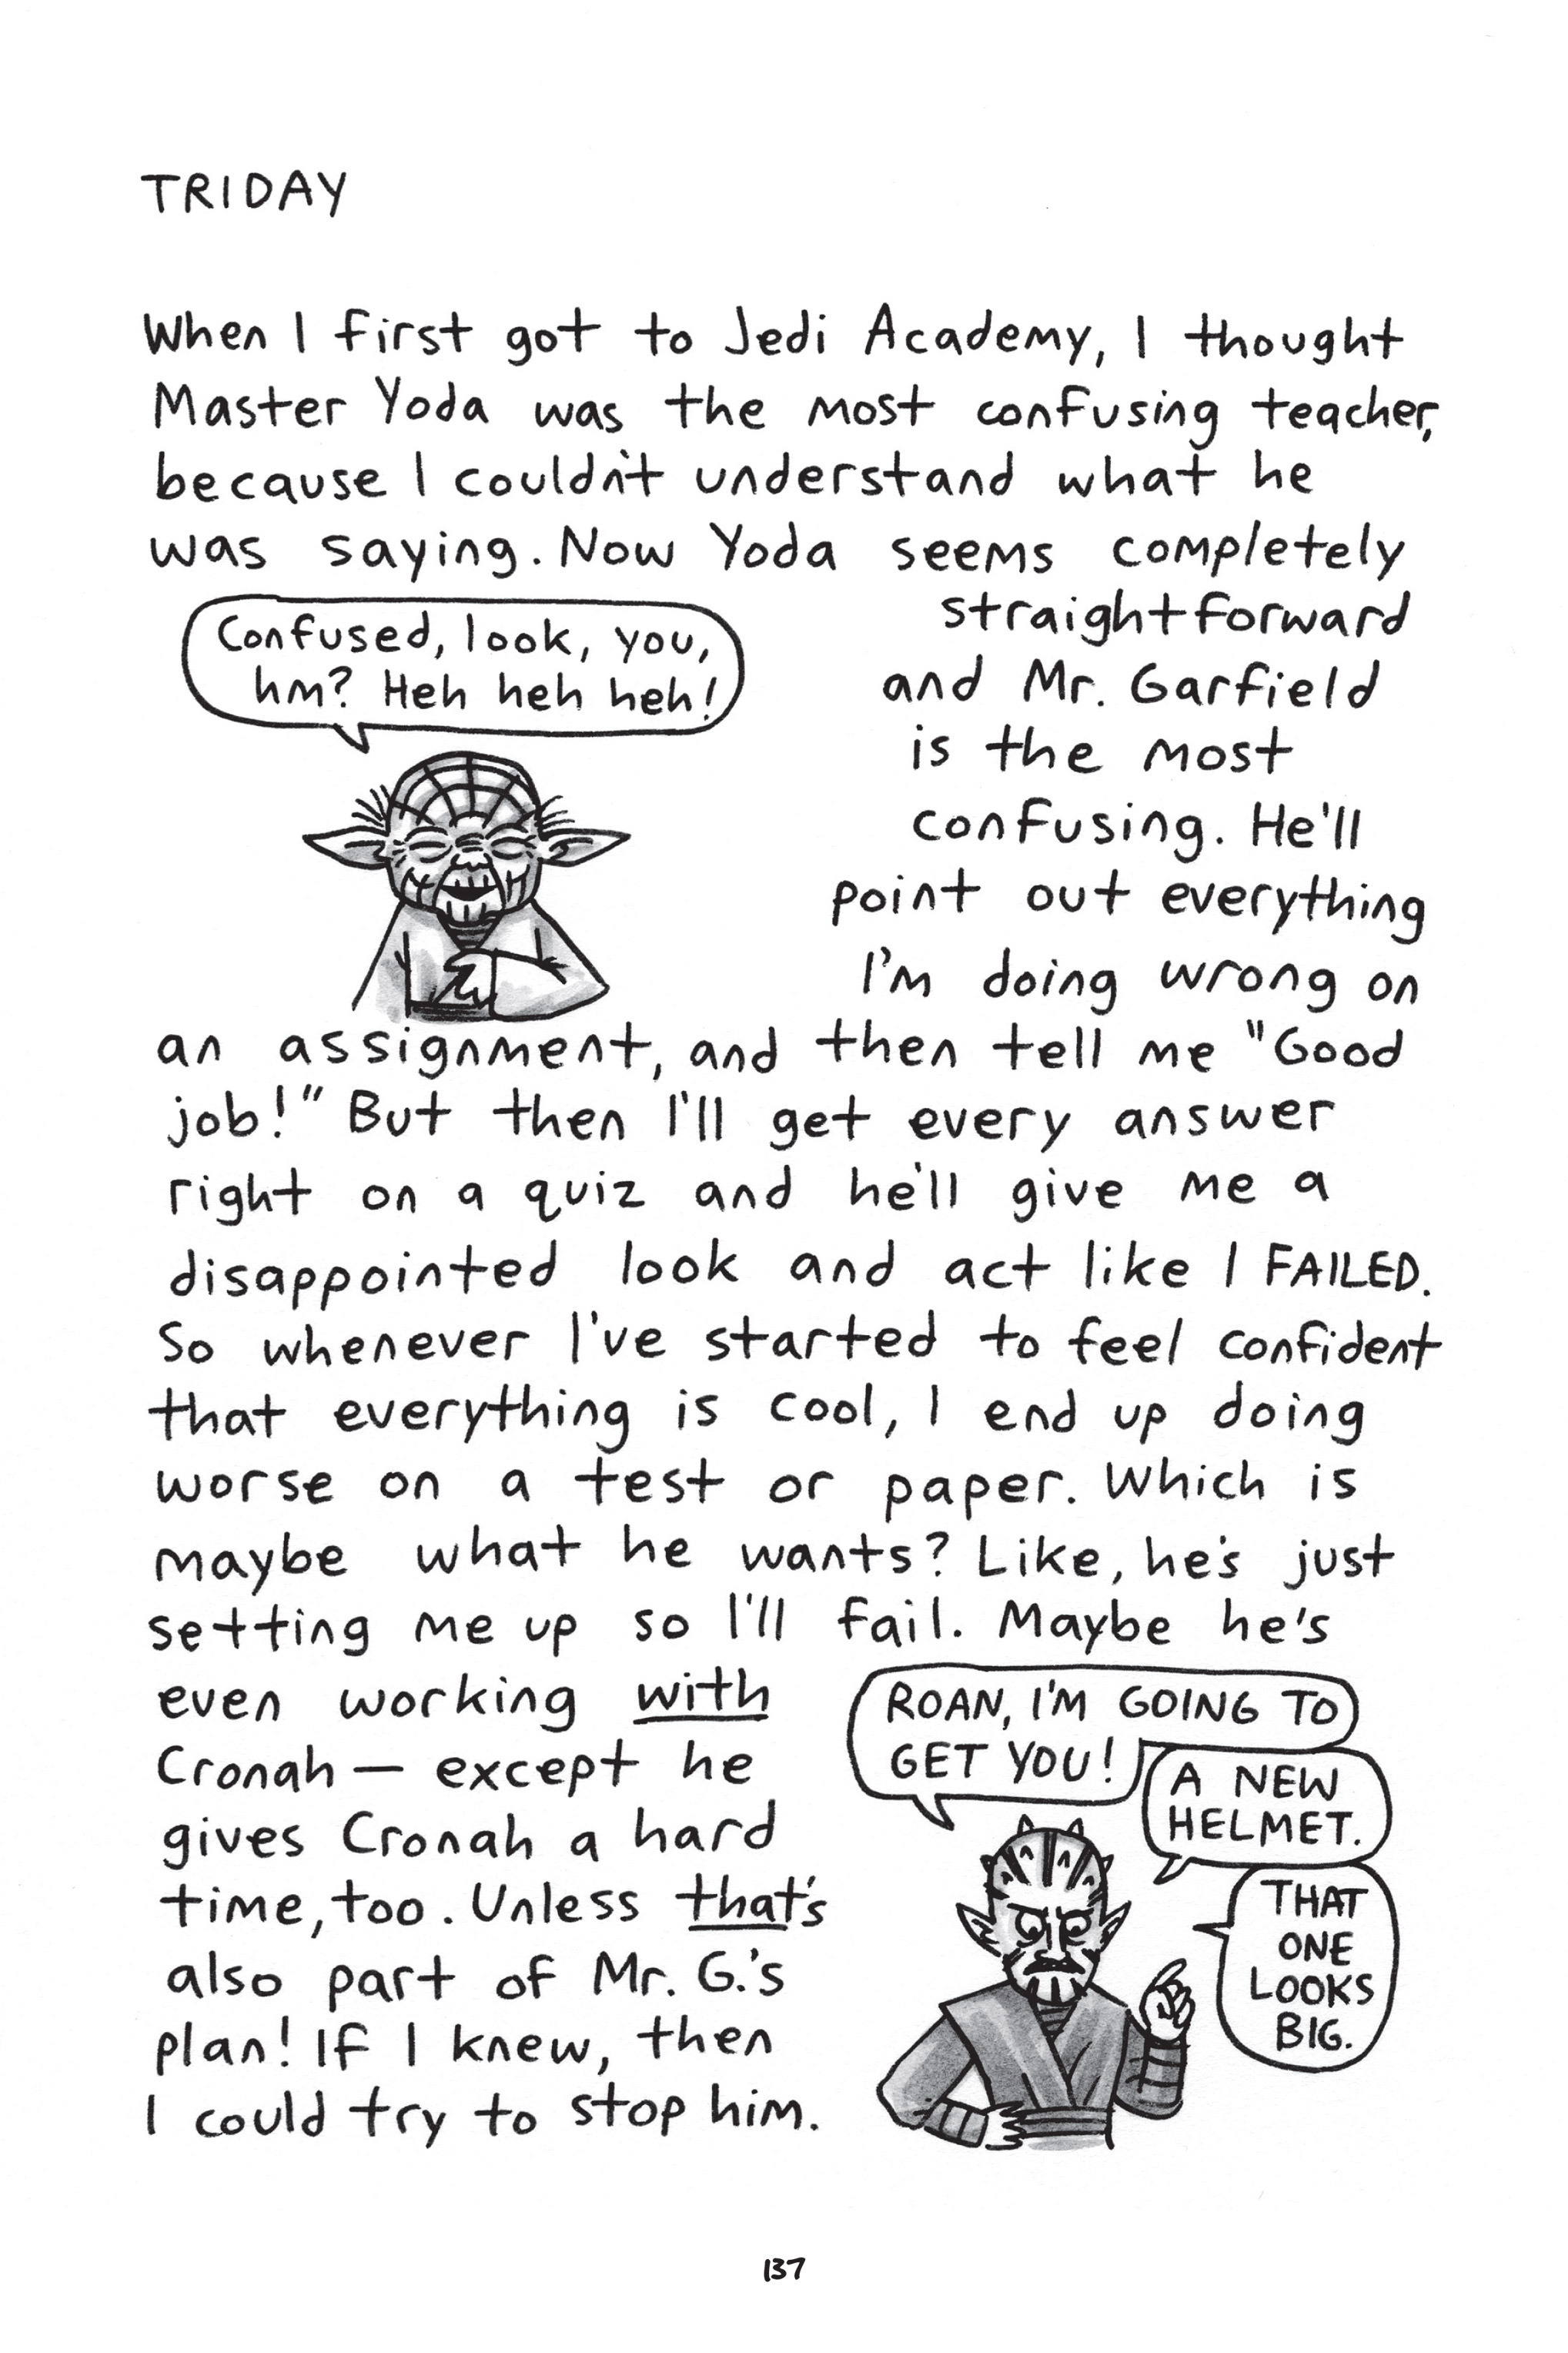 TRIDAY
When I first got to Jedi Academy, I thought
Master Yoda was the most confusing teacher,
because I couldn't understand what he
was saying. Now Yoda seems completely
straightforward
and Mr. Garfield
is the most
confusing. He'll
point out everything
I'm doing wrong on
Confused, look, you,
hm? Heh heh heh!
an assignment, and then tell me "Good
job!" But then I'll get every answer
right on a quiz and he'll give me a
disappointed look and act like I FAILED.
So whenever I've started to feel confident
that everything is cool, I end up doing
worse on a test or paper. Which is
maybe what he wants? Like, he's just
setting me up so I'll fail. Maybe he's
even working with
Cronah — except he
gives Cronah a hard
time, too. Unless that's
also part of Mr. G.'s
plan! If I knew, then
I could try to stop him.
ROAN, I'M GOING TO
GET YOU!
A NEW
HELMET.
THAT
ONE
LOOKS
BIG.
137